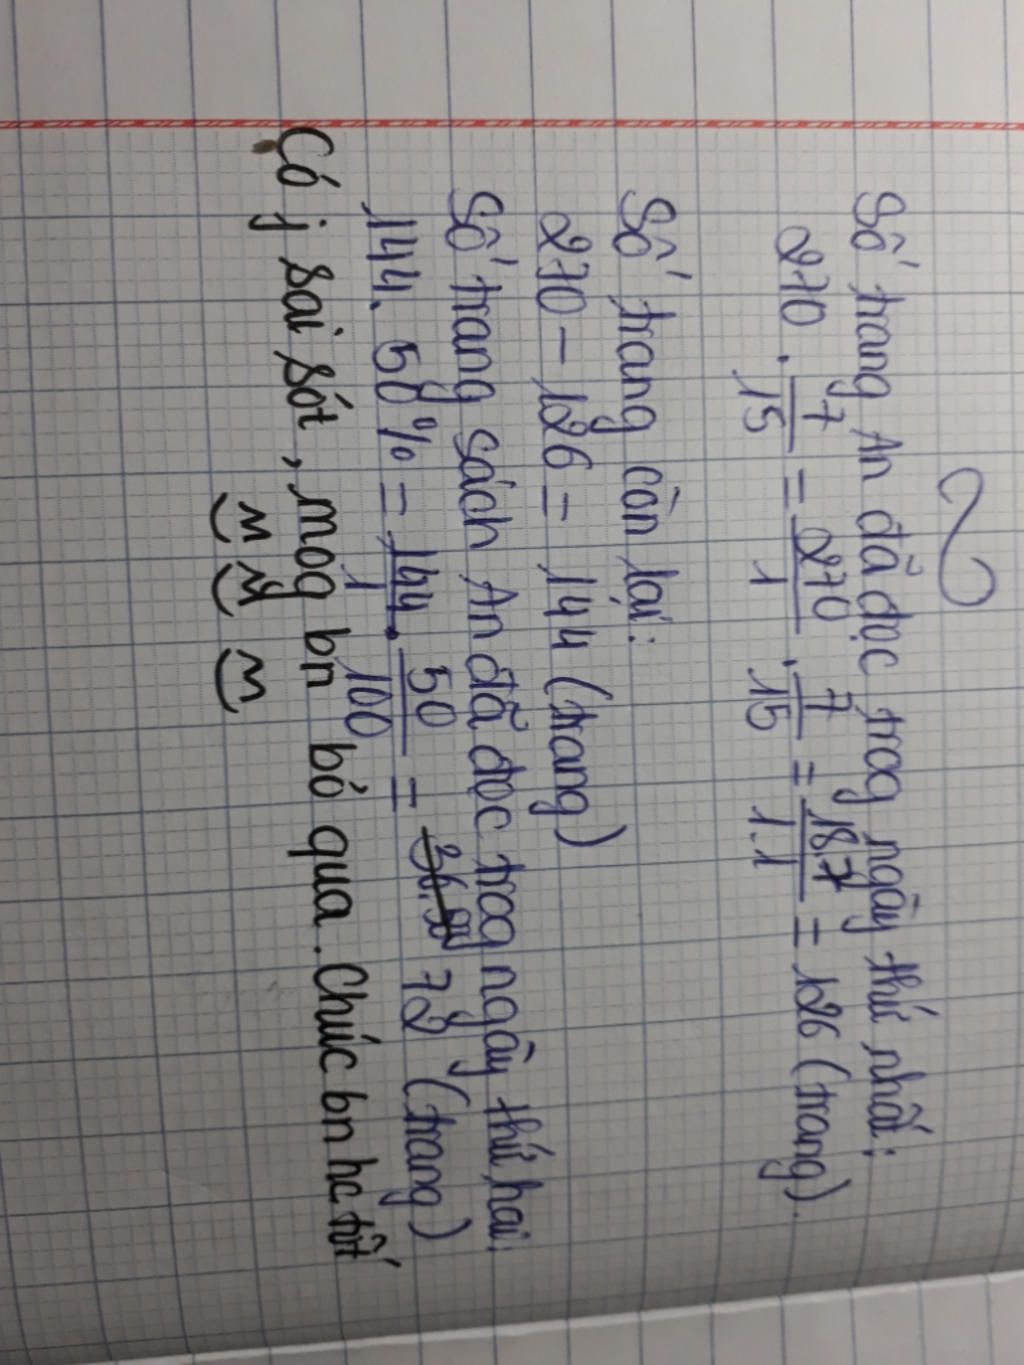 Số trang An đã đọc trog ngày thứ nhất:
270 . 7/15 = 270/1 . 7/15 = 18.7/1.1 = 126 (trang).
Số trang còn lại:
270 - 126 = 144 (trang)
Số trang sách An đã đọc trog ngày thứ hai:
144. 50% = 144/1 . 50/100 = 72 (trang)
Có j sai sót, mog bn bỏ qua. Chúc bn hc tốt